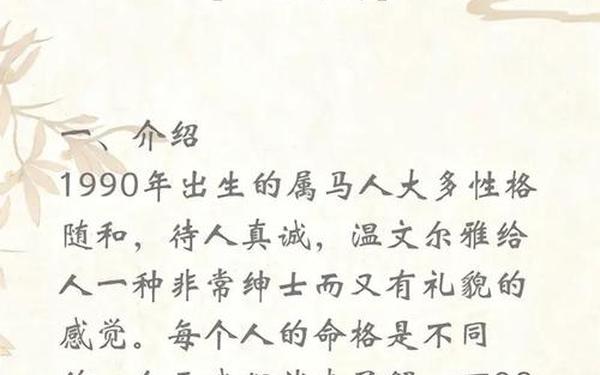 一、介绍
1990年出生的属马人大多性格
随和，待人真诚，温文尔雅给
人一种非常绅士而又有礼貌的
感觉。每个人的命格是不同